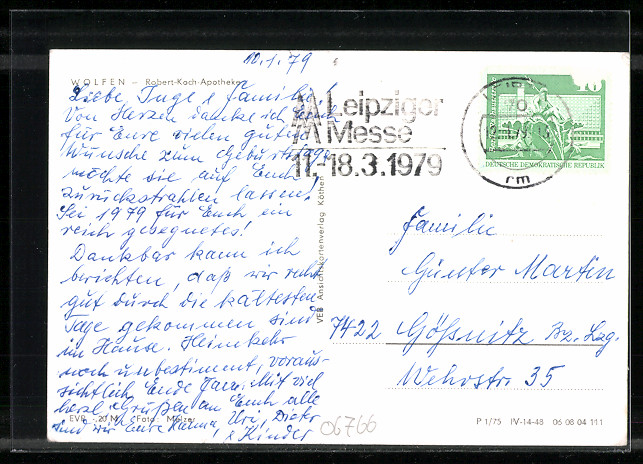 10.1.79
WOLFEN – Robert-Koch-Apotheke
Liebe Inge & Familie!
Von Herzen danke ich Euch
für Eure vielen guten
Wünsche zum Geburtstage
möchte sie auf Euch
zurückstrahlen lassen.
Sei 1979 für Euch ein
reich gesegnetes!
Dankbar kann ich
berichten, daß wir recht
gut durch die kältesten
Tage gekommen sind
im Hause. Heimkehr
noch unbestimmt, voraus-
sichtlich Ende Jan. Mit viel
herzl. Grüßen an Euch alle
sind wir Eure Uri, Dieter
& Kinder
EVP 20 M Foto:
06766
VEB Ansichtskartenverlag Köthen
MM Leipziger
Messe
11.-18.3.1979
70
10
DEUTSCHE DEMOKRATISCHE REPUBLIK
Familie
Günter Martin
7422 Gößnitz Bz. Lzg.
Wehrstr. 35
P 1/75 IV-14-48 06 08 04 111